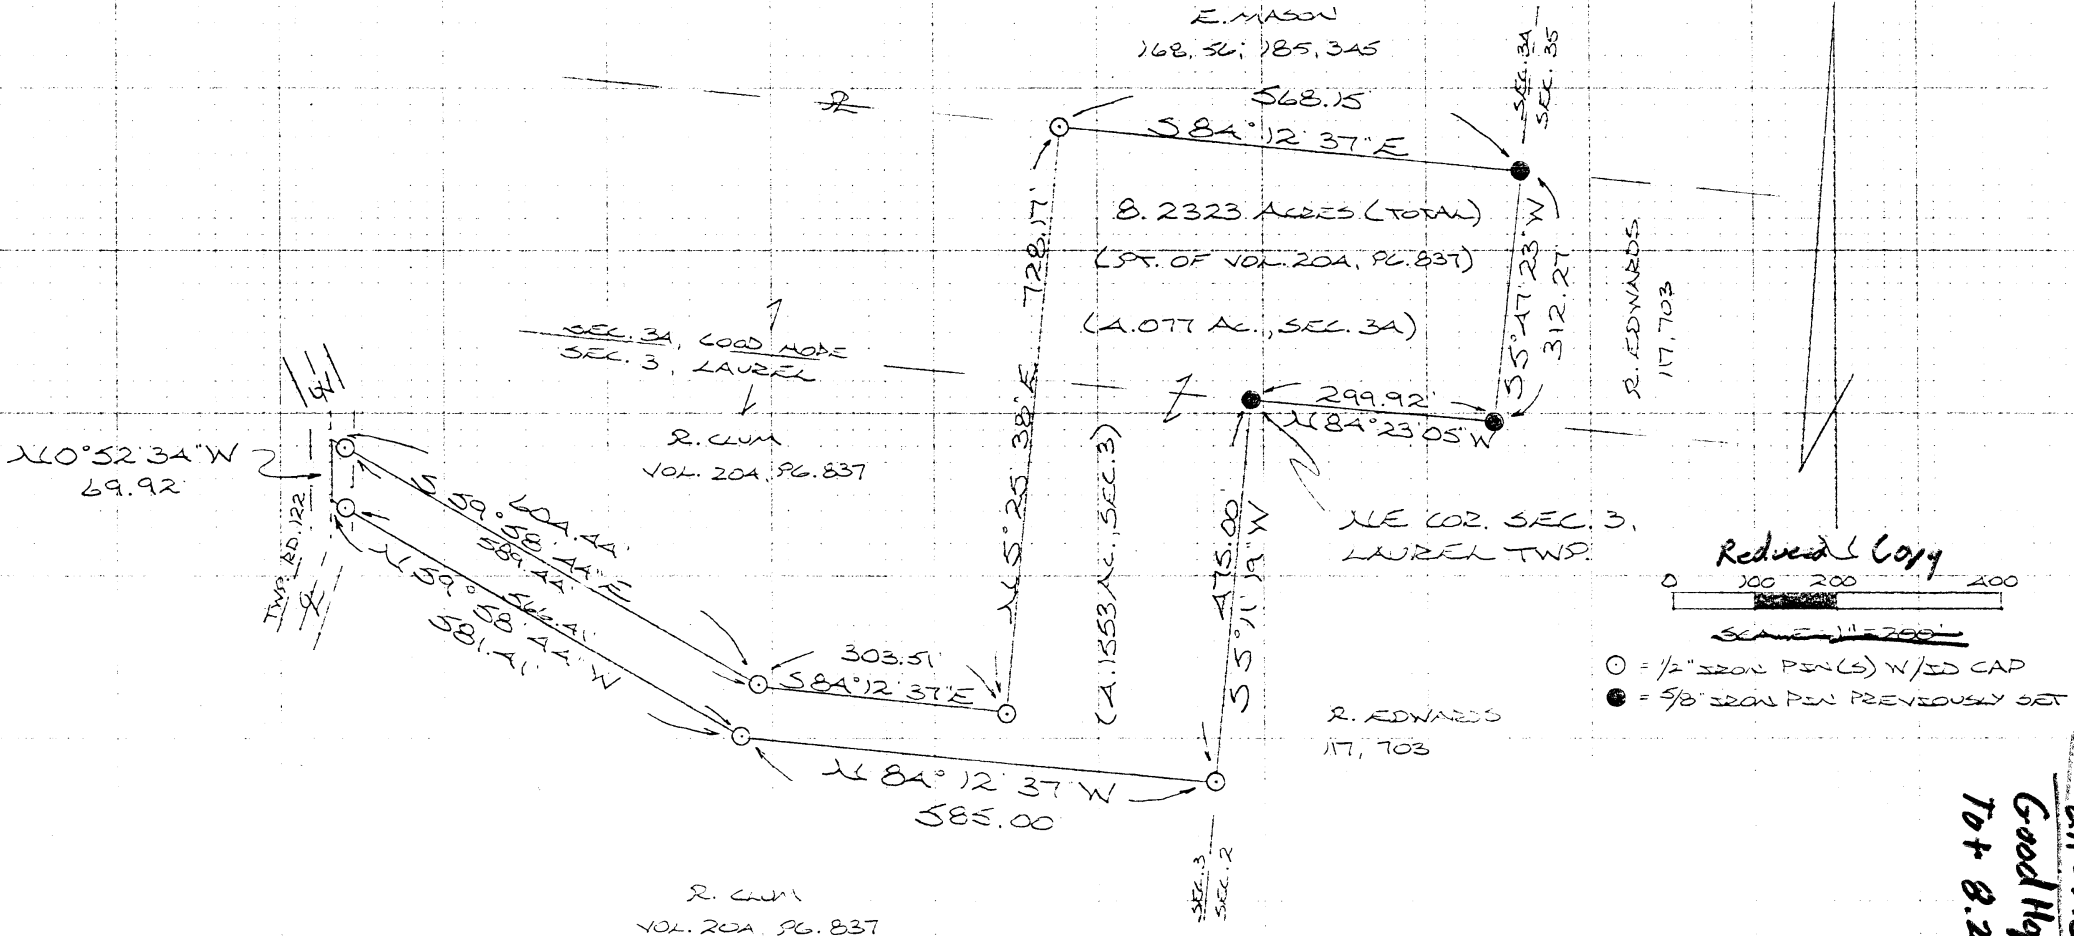 E. MASON
168, 56; 185, 345
SEC. 34
SEC. 35
PL
568.15
S 84° 12' 37" E
8.2323 ACRES (TOTAL)
(PT. OF VOL. 204, PG. 837)
(4.077 AC., SEC. 34)
S 5° 47' 23" W
312.27
R. EDWARDS
117, 703
N 5° 25' 38" E 728.17'
SEC. 34, GOOD HOPE
SEC. 3, LAUREL
R. CLUM
VOL. 204, PG. 837
299.92'
N 84° 23' 05" W
NE COR. SEC. 3,
LAUREL TWP.
N 0° 52' 34" W
69.92
TWP. RD. 122
604.44'
S 59° 58' 44" E
589.44'
566.41'
N 59° 58' 44" W
581.41'
303.51'
S 84° 12' 37" E
(4.1553 AC., SEC. 3)
475.00'
S 5° 11' 19" W
N 84° 12' 37" W
585.00
R. EDWARDS
117, 703
SEC. 3
SEC. 2
R. CLUM
VOL. 204, PG. 837
Reduced Copy
0 100 200 400
SCALE - 1" = 200'
= 1/2" IRON PIN(S) W/ID CAP
= 5/8" IRON PIN PREVIOUSLY SET
Good Ho
Tot 8.2